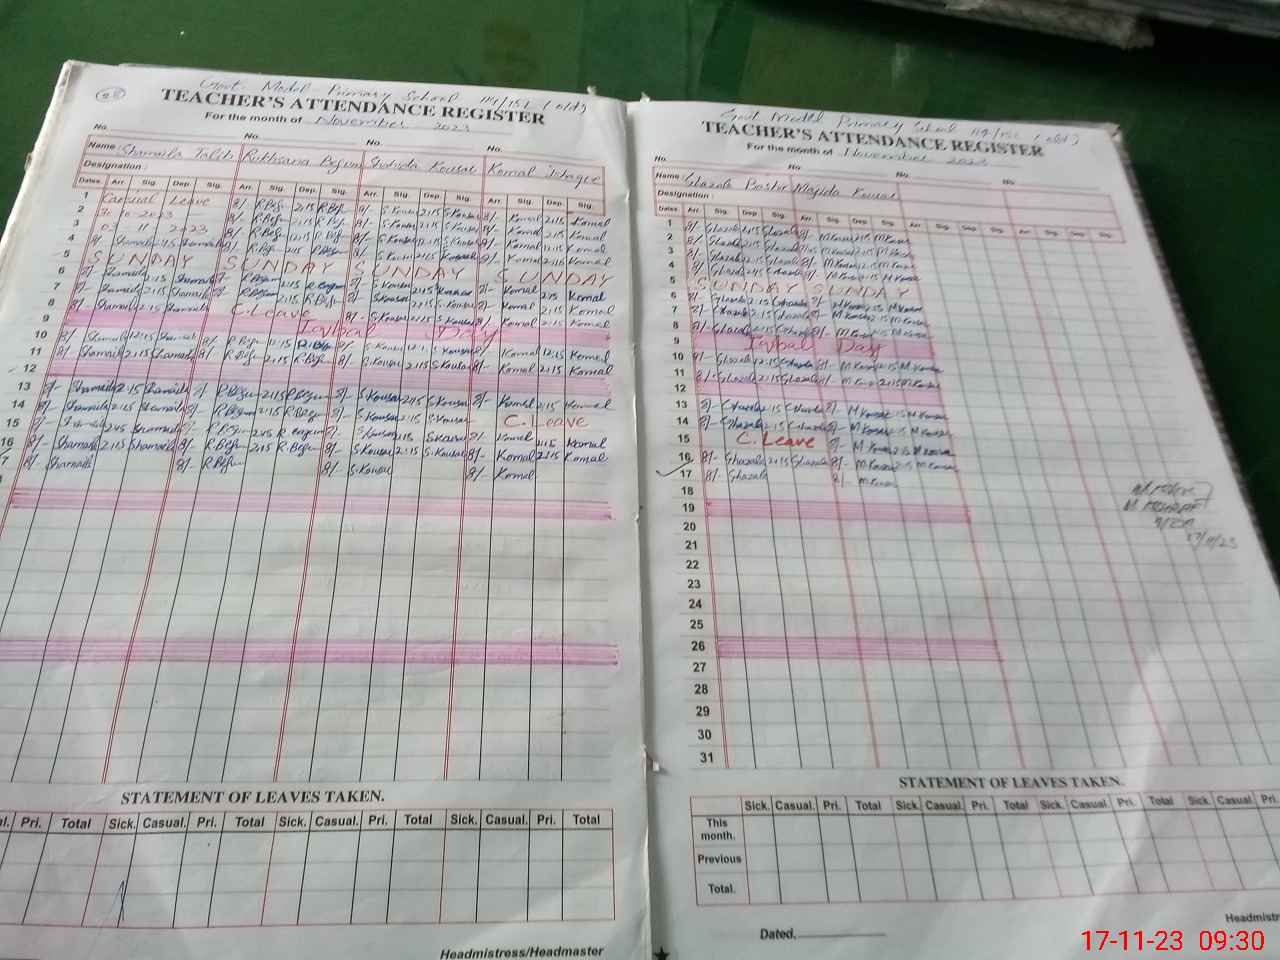 28
Govt. Model Primary School 114/15L (old)
TEACHER'S ATTENDANCE REGISTER
For the month of November 2023
No. No. No. No.
Name: Shamaila Talib Rukhsana Begum Shahida Kousar Komal Ishaque
Designation:
Dates. Arr. Sig. Dep. Sig. Arr. Sig. Dep. Sig. Arr. Sig. Dep. Sig. Arr. Sig. Dep. Sig.
1 Casual Leave 8/- R.Begum 2:15 R.Begum 8/- S.Kousar 2:15 S.Kousar 8/- Komal 2:15 Komal
2 30-10-2023 8/- R.Begum 2:15 R.Begum 8/- S.Kousar 2:15 S.Kousar 8/- Komal 2:15 Komal
3 03 11 2023 8/- R.Begum 12:15 R.Begum 8/- S.Kousar 12:15 S.Kousar 8/- Komal 12:15 Komal
4 8/- Shamaila 2:15 Shamaila 8/- R.Begum R.Begum 8/- S.Kousar 2:15 S.Kousar 8/- Komal 2:15 Komal
5 SUNDAY SUNDAY SUNDAY SUNDAY
6 8/- Shamaila 2:15 Shamaila 8/- R.Begum 2:15 R.Begum 8/- S.Kousar 2:15 S.Kousar 8/- Komal 2:15 Komal
7 8/- Shamaila 2:15 Shamaila 8/- R.Begum 2:15 R.Begum 8/- S.Kousar 2:15 S.Kousar 8/- Komal 2:15 Komal
8 8/- Shamaila 2:15 Shamaila C.Leave 8/- S.Kousar 2:15 S.Kousar 8/- Komal 2:15 Komal
9 Iqbal Day
10 8/- Shamaila 12:15 Shamaila 8/- R.Begum 12:15 R.Begum 8/- S.Kousar 12:15 S.Kousar 8/- Komal 12:15 Komal
11 8/- Shamaila 2:15 Shamaila 8/- R.Begum 2:15 R.Begum 8/- S.Kousar 2:15 S.Kousar 8/- Komal 2:15 Komal
12
13 8/- Shamaila 2:15 Shamaila 8/- R.Begum 2:15 R.Begum 8/- S.Kousar 2:15 S.Kousar 8/- Komal 2:15 Komal
14 8/- Shamaila 2:15 Shamaila 8/- R.Begum 2:15 R.Begum 8/- S.Kousar 2:15 S.Kousar C.Leave
15 8/- Shamaila 2:45 Shamaila 8/- R.Begum 2:45 R.Begum 8/- S.Kousar 2:15 S.Kousar 8/- Komal 2:15 Komal
16 8/- Shamaila 2:15 Shamaila 8/- R.Begum 2:15 R.Begum 8/- S.Kousar 2:15 S.Kousar 8/- Komal 2:15 Komal
7 8/- Shamaila 8/- R.Begum 8/- S.Kousar 8/- Komal
STATEMENT OF LEAVES TAKEN.
Pri. Total Sick. Casual. Pri. Total Sick. Casual. Pri. Total Sick. Casual. Pri. Total
Headmistress/Headmaster
Govt Model Primary School 114/15L (old)
TEACHER'S ATTENDANCE REGISTER
For the month of November 2023
No. No. No. No.
Name: Ghazala Bashir Majida Kousar
Designation:
Dates. Arr. Sig. Dep. Sig. Arr. Sig. Dep. Sig. Arr. Sig. Dep. Sig. Arr. Sig. Dep. Sig.
1 8/- Ghazala 2:15 Ghazala 8/- M.Kousar 2:15 M.Kousar
2 8/- Ghazala 2:15 Ghazala 8/- M.Kousar 2:15 M.Kousar
3 8/- Ghazala Ghazala 8/- M.Kousar M.Kousar
4 8/- Ghazala 2:15 Ghazala 8/- M.Kousar 2:15 M.Kousar
5 SUNDAY SUNDAY
6 8/- Ghazala 2:15 Ghazala 8/- M.Kousar 2:15 M.Kousar
7 8/- Ghazala 2:15 Ghazala 8/- M.Kousar 2:15 M.Kousar
8 8/- Ghazala 2:15 Ghazala 8/- M.Kousar 2:15 M.Kousar
9 Iqbal Day
10 8/- Ghazala 12:15 Ghazala 8/- M.Kousar 12:15 M.Kousar
11 8/- Ghazala 2:15 Ghazala 8/- M.Kousar 2:15 M.Kousar
12
13 8/- Ghazala 2:15 Ghazala 8/- M.Kousar 2:15 M.Kousar
14 8/- Ghazala 2:15 Ghazala 8/- M.Kousar 2:15 M.Kousar
15 C.Leave 8/- M.Kousar 2:15 M.Kousar
16 8/- Ghazala 2:15 Ghazala 8/- M.Kousar 2:15 M.Kousar
17 8/- Ghazala 8/- M.Kousar
18
19
20
21
22
23
24
25
26
27
28
29
30
31
17/11/23
STATEMENT OF LEAVES TAKEN.
Sick. Casual. Pri. Total Sick. Casual. Pri. Total Sick. Casual. Pri. Total Sick. Casual. Pri.
This month.
Previous
Total.
Dated.
Headmistr
17-11-23 09:30